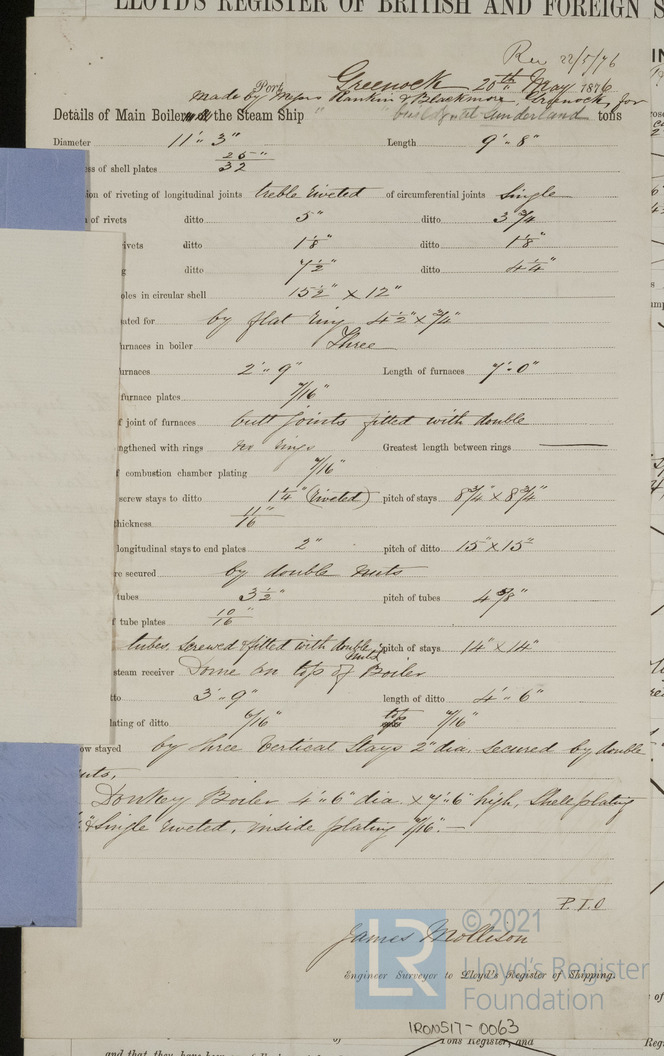 LLOYD'S REGISTER OF BRITISH AND FOREIGN S
Rec 22/5/76
Port Greenock 20th May 1876
made by Messrs Rankin & Blackmore, Greenock, for
Details of Main Boiler of the Steam Ship " " built at Sunderland tons
Diameter 11'.. 3" Length 9'.. 8"
ss of shell plates 25/32"
ion of riveting of longitudinal joints treble riveted of circumferential joints Single
of rivets ditto 5" ditto 3 3/4
rivets ditto 1 1/8" ditto 1 1/8"
g ditto 7 1/2" ditto 4 1/4"
oles in circular shell 15 1/2" x 12"
ated for by flat ring 4 1/2" x 3/4"
urnaces in boiler Three
urnaces 2'.. 9" Length of furnaces 7'.. 0"
furnace plates 7/16"
f joint of furnaces butt joints fitted with double
ngthened with rings no rings Greatest length between rings
f combustion chamber plating 7/16"
screw stays to ditto 1 1/4" (riveted) pitch of stays 8 3/4" x 8 3/4"
thickness 11/16"
longitudinal stays to end plates 2" pitch of ditto 15" x 15"
re secured by double nuts
tubes 3 1/2" pitch of tubes 4 5/8"
f tube plates 10/16"
tubes screwed & fitted with double nuts pitch of stays 14" x 14"
steam receiver Dome on top of Boiler
tto 3'.. 9" length of ditto 4'.. 6"
lating of ditto 6/16" top 7/16"
ow stayed by three vertical stays 2" dia. secured by double
uts,
Donkey Boiler 4'.. 6" dia. x 7'.. 6" high, Shell plating
& Single riveted, inside plating 7/16".—
P.T.O
James Mollison
Engineer Surveyor to Lloyd's Register of Shipping.
© 2021
LR
Lloyd's Register
Foundation
IRON517-0063
Tons Register, and
and that they have